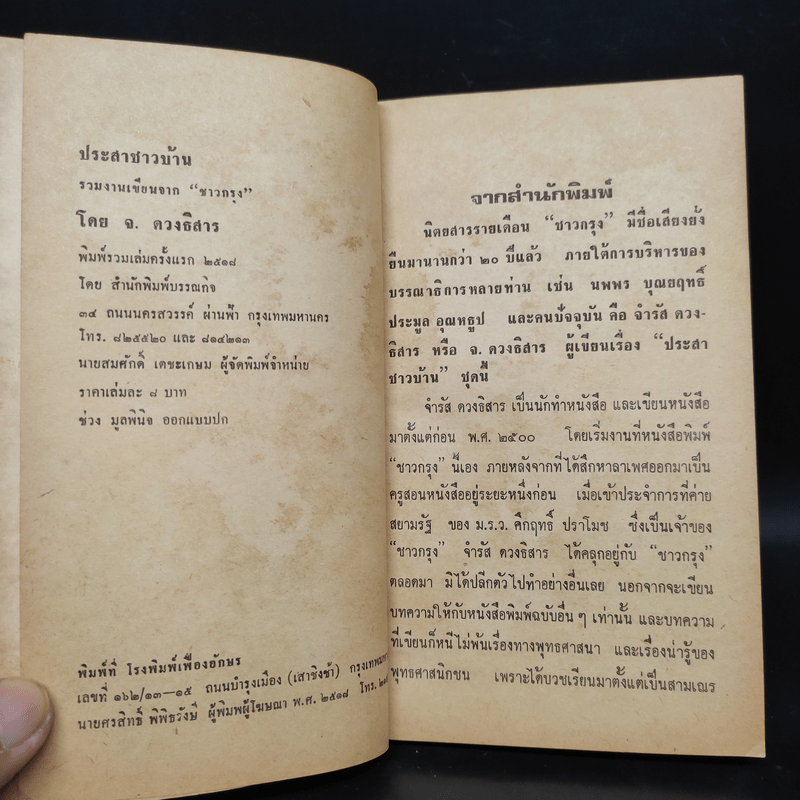 ประสาชาวบ้าน
รวมงานเขียนจาก “ชาวกรุง”
โดย จ. ดวงธิสาร
พิมพ์รวมเล่มครั้งแรก ๒๕๑๘
โดย สำนักพิมพ์บรรณกิจ
๓๔ ถนนนครสวรรค์ ผ่านฟ้า กรุงเทพมหานคร
โทร. ๘๒๕๕๒๐ และ ๘๑๔๒๑๓
นายสมศักดิ์ เตชะเกษม ผู้จัดพิมพ์จำหน่าย
ราคาเล่มละ ๘ บาท
ช่วง มูลพินิจ ออกแบบปก
พิมพ์ที่ โรงพิมพ์เฟื่องอักษร
เลขที่ ๑๖๒/๑๓—๑๕ ถนนบำรุงเมือง (เสาชิงช้า) กรุงเทพมหา
นายศรสิทธิ์ พิพิธวังษ์ ผู้พิมพ์ผู้โฆษณา พ.ศ. ๒๕๑๘ โทร.
จากสำนักพิมพ์
นิตยสารรายเดือน “ชาวกรุง” มีชื่อเสียงยั่ง
ยืนมานานกว่า ๒๐ ปีแล้ว ภายใต้การบริหารของ
บรรณาธิการหลายท่าน เช่น นพพร บุณยฤทธิ์
ประมูล อุณหธูป และคนปัจจุบัน คือ จำรัส ดวง-
ธิสาร หรือ จ. ดวงธิสาร ผู้เขียนเรื่อง “ประสา
ชาวบ้าน” ชุดนี้
จำรัส ดวงธิสาร เป็นนักทำหนังสือ และเขียนหนังสือ
มาตั้งแต่ก่อน พ.ศ. ๒๕๐๐ โดยเริ่มงานที่หนังสือพิมพ์
“ชาวกรุง” นี้เอง ภายหลังจากที่ได้สึกหาลาเพศออกมาเป็น
ครูสอนหนังสืออยู่ระยะหนึ่งก่อน เมื่อเข้าประจำการที่ค่าย
สยามรัฐ ของ ม.ร.ว. คึกฤทธิ์ ปราโมช ซึ่งเป็นเจ้าของ
“ชาวกรุง” จำรัส ดวงธิสาร ได้คลุกอยู่กับ “ชาวกรุง”
ตลอดมา มิได้ปลีกตัวไปทำอย่างอื่นเลย นอกจากจะเขียน
บทความให้กับหนังสือพิมพ์ฉบับอื่น ๆ เท่านั้น และบทความ
ที่เขียนก็หนีไม่พ้นเรื่องทางพุทธศาสนา และเรื่องน่ารู้ของ
พุทธศาสนิกชน เพราะได้บวชเรียนมาตั้งแต่เป็นสามเณร